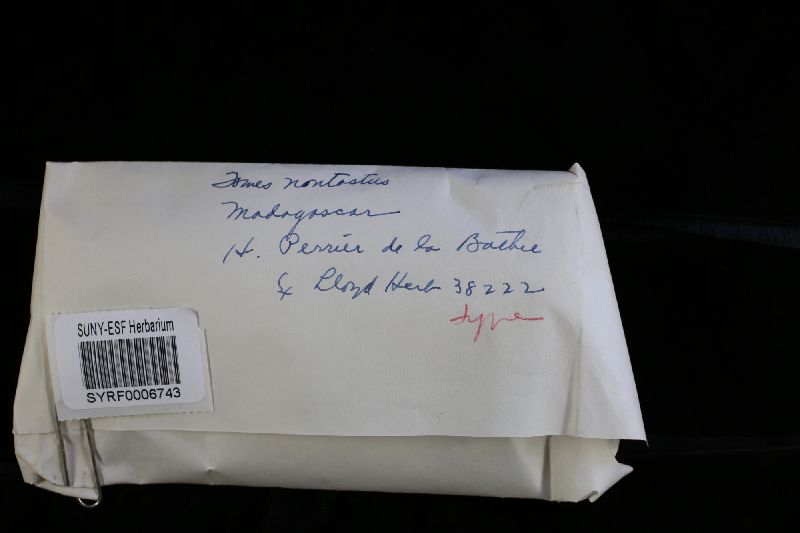 Fomes nontostus
Madagascar
H. Perrier de la Bathie
Ex Lloyd Herb 38222
type
SUNY-ESF Herbarium
SYRF0006743